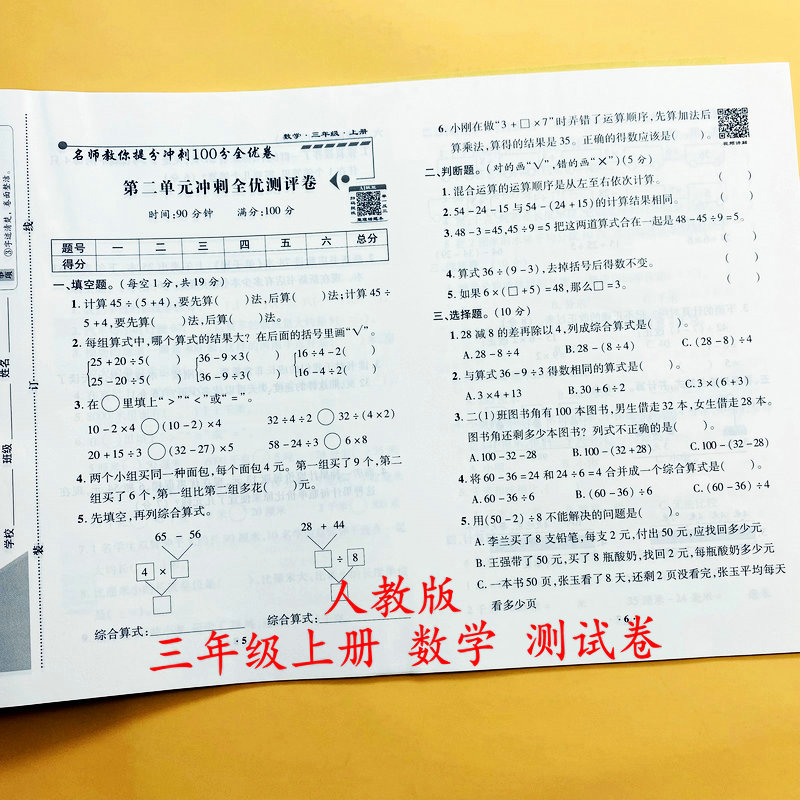 ③字迹清楚，卷面整洁。
姓名
班级
学校
线
订
装
数学·三年级·上册
名师教你提分冲刺100分全优卷
第二单元冲刺全优测评卷
时间:90分钟 满分:100分
题号 一 二 三 四 五 六 总分
得分
一、填空题。(每空1分,共19分)
1.计算45÷(5+4),要先算( )法,后算( )法;计算45÷
5+4,要先算( )法,后算( )法。
2.每组算式中,哪个算式的结果大? 在后面的括号里画“√”。
25+20÷5( ) 36-9×3( ) 16÷4-2( )
25-20÷5( ) 36-9÷3( ) 16-4÷2( )
3.在○里填上“>”“<”或“=”。
10-2×4○(10-2)×4 32÷4÷2○32÷(4×2)
20+15÷3○(32-27)×5 58-24÷3○6×8
4.两个小组买同一种面包,每个面包4元。第一组买了9个,第二
组买了6个,第一组比第二组多花( )元。
5.先填空,再列综合算式。
65 - 56 28 + 44
4 × □ □ ÷ 8
□ □
综合算式: 综合算式:
·5
6.小刚在做“3+□×7”时弄错了运算顺序,先算加法后
算乘法,算得的结果是35。正确的得数应该是( )。
二、判断题。(对的画“√”,错的画“×”)(5分)
1.混合运算的运算顺序是从左至右依次计算。 ( )
2.54-24-15与54-(24+15)的计算结果相同。 ( )
3.48-3=45,45÷9=5把这两道算式合在一起是48-45÷9=5。
( )
4.算式36÷(9-3),去掉括号后得数不变。 ( )
5.如果6×(□+5)=48,那么□=3。 ( )
三、选择题。(10分)
1.28减8的差再除以4,列成综合算式是( )。
A.28-8÷4 B.28-(8÷4) C.(28-8)÷4
2.与算式36-9÷3得数相同的算式是( )。
A.3×4+13 B.30+6÷2 C.3×(6+3)
3.二(1)班图书角有100本图书,男生借走32本,女生借走28本。
图书角还剩多少本图书? 列式不正确的是( )。
A.100-32-28 B.100-(32+28) C.100-(32-28)
4.将60-36=24和24÷6=4合并成一个综合算式是( )。
A.60-36÷6 B.(60-36)÷6 C.(60-36)÷4
5.用(50-2)÷8不能解决的问题是( )。
A.李兰买了8支铅笔,每支2元,付出50元,应找回多少元
B.王强带了50元,买了8瓶酸奶,找回2元,每瓶酸奶多少元
C.一本书50页,张玉看了8天,还剩2页没看完,张玉平均每天
看多少页
·6
人教版
三年级上册 数学 测试卷